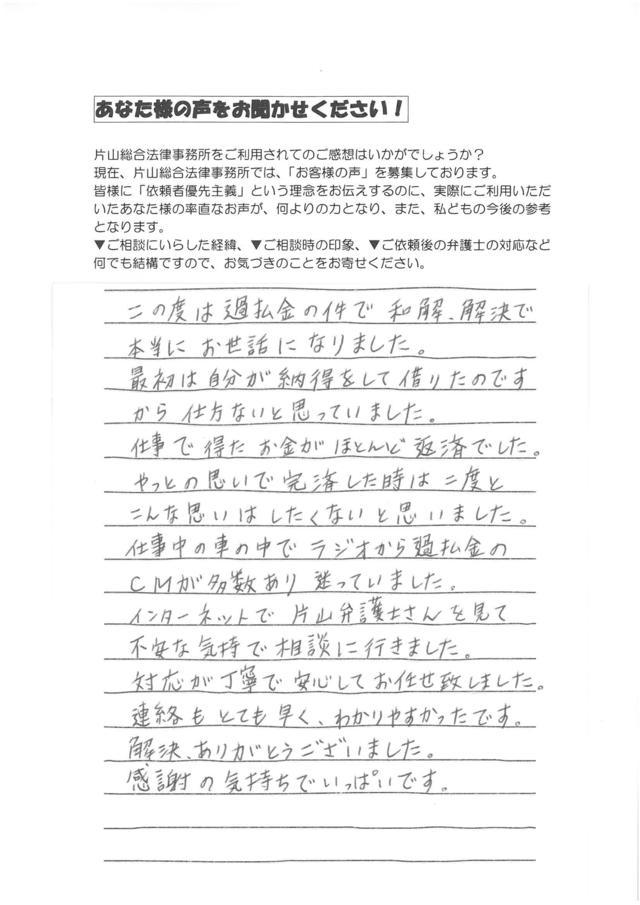 あなた様の声をお聞かせください！
片山総合法律事務所をご利用されてのご感想はいかがでしょうか？
現在、片山総合法律事務所では、「お客様の声」を募集しております。
皆様に「依頼者優先主義」という理念をお伝えするのに、実際にご利用いただ
いたあなた様の率直なお声が、何よりの力となり、また、私どもの今後の参考
となります。
▼ご相談にいらした経緯、▼ご相談時の印象、▼ご依頼後の弁護士の対応など
何でも結構ですので、お気づきのことをお寄せください。
この度は過払金の件で 和解、解決で
本当に お世話に なりました。
最初は自分が納得をして借りたのです
から 仕方ないと思っていました。
仕事で得た お金が ほとんど 返済でした。
やっとの思いで完済した時は 二度と
こんな思いは したくないと思いました。
仕事中の車の中で ラジオから過払金の
ＣＭが多数あり 迷っていました。
インターネットで 片山弁護士さんを見て
不安な気持で相談に行きました。
対応が丁寧で 安心して お任せ致しました。
連絡も とても早く、わかりやすかったです。
解決、ありがとうございました。
感謝の気持ちでいっぱいです。